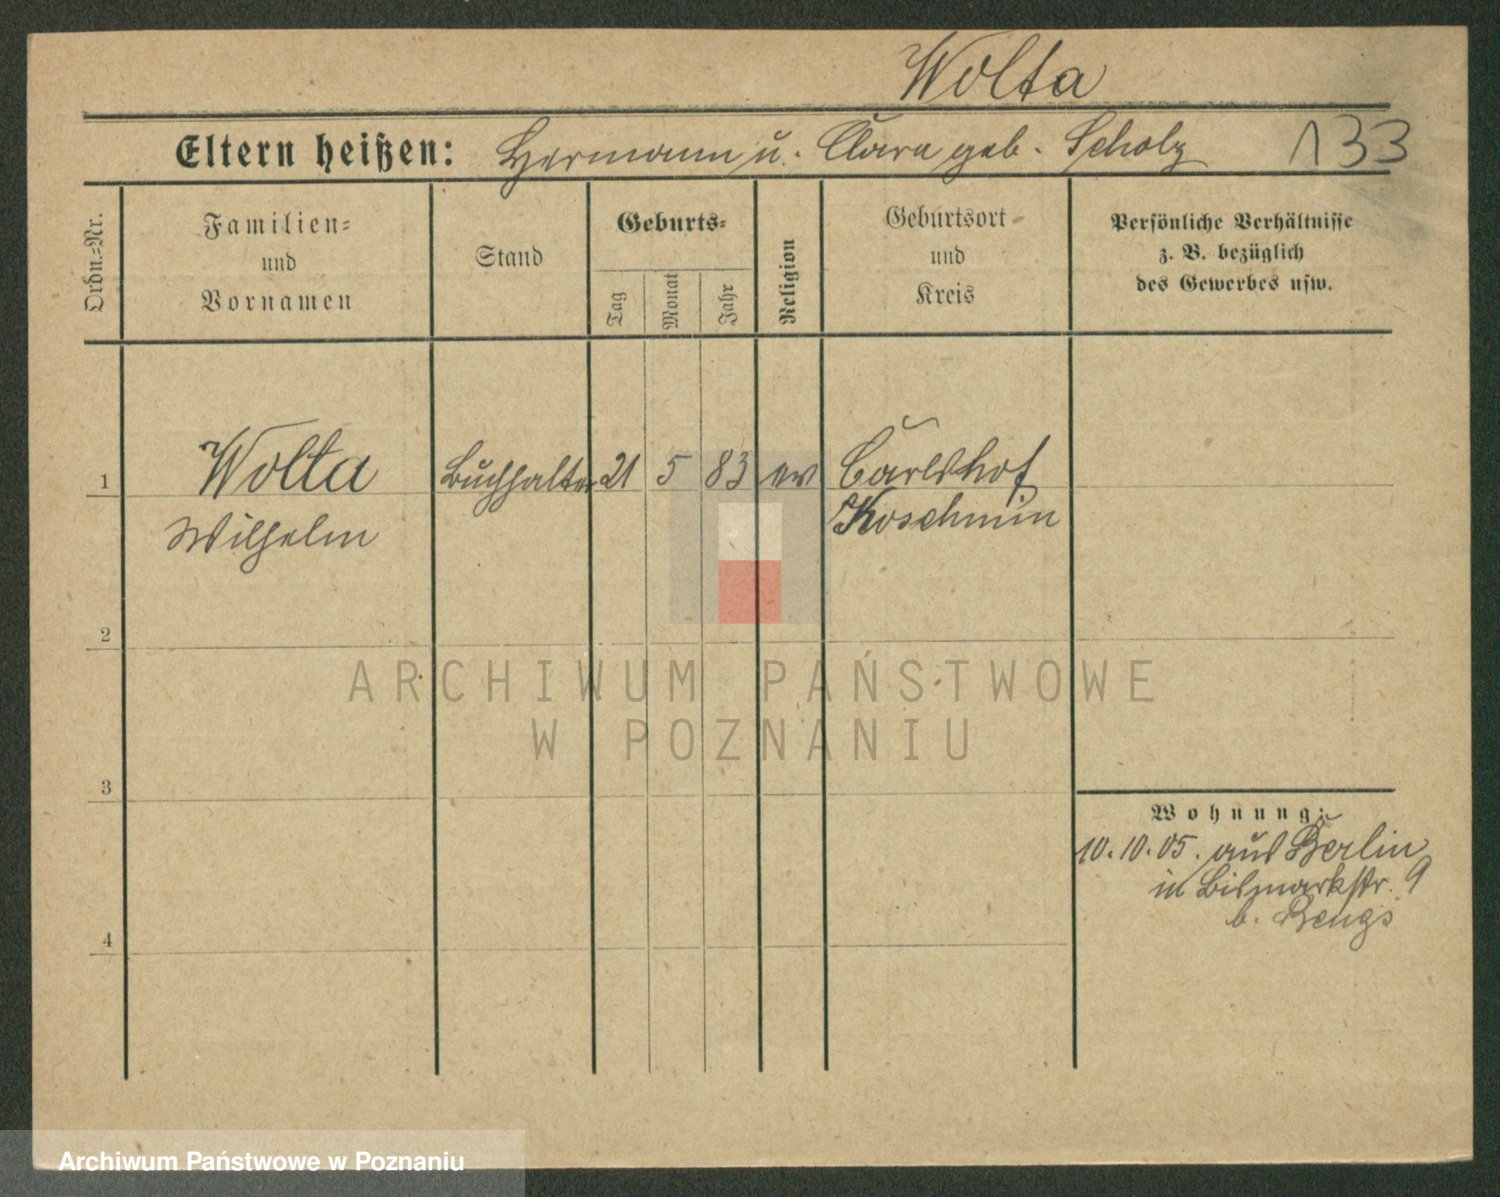 Wolta
Eltern heißen: Hermann u. Clara geb. Scholz 133
Ordn.=Nr.
Familien=
und
Vornamen
Stand
Geburts=
Tag
Monat
Jahr
Religion
Geburtsort
und
Kreis
Persönliche Verhältnisse
z. B. bezüglich
des Gewerbes usw.
1 Wolta Buchhalter 21 5 83 ev Carlshof
Wilhelm Koschmin
2
ARCHIWUM PAŃSTWOWE
W POZNANIU
3
Wohnung:
10.10.05. aus Berlin
in Bismarkstr. 9
b. Bengs
4
Archiwum Państwowe w Poznaniu